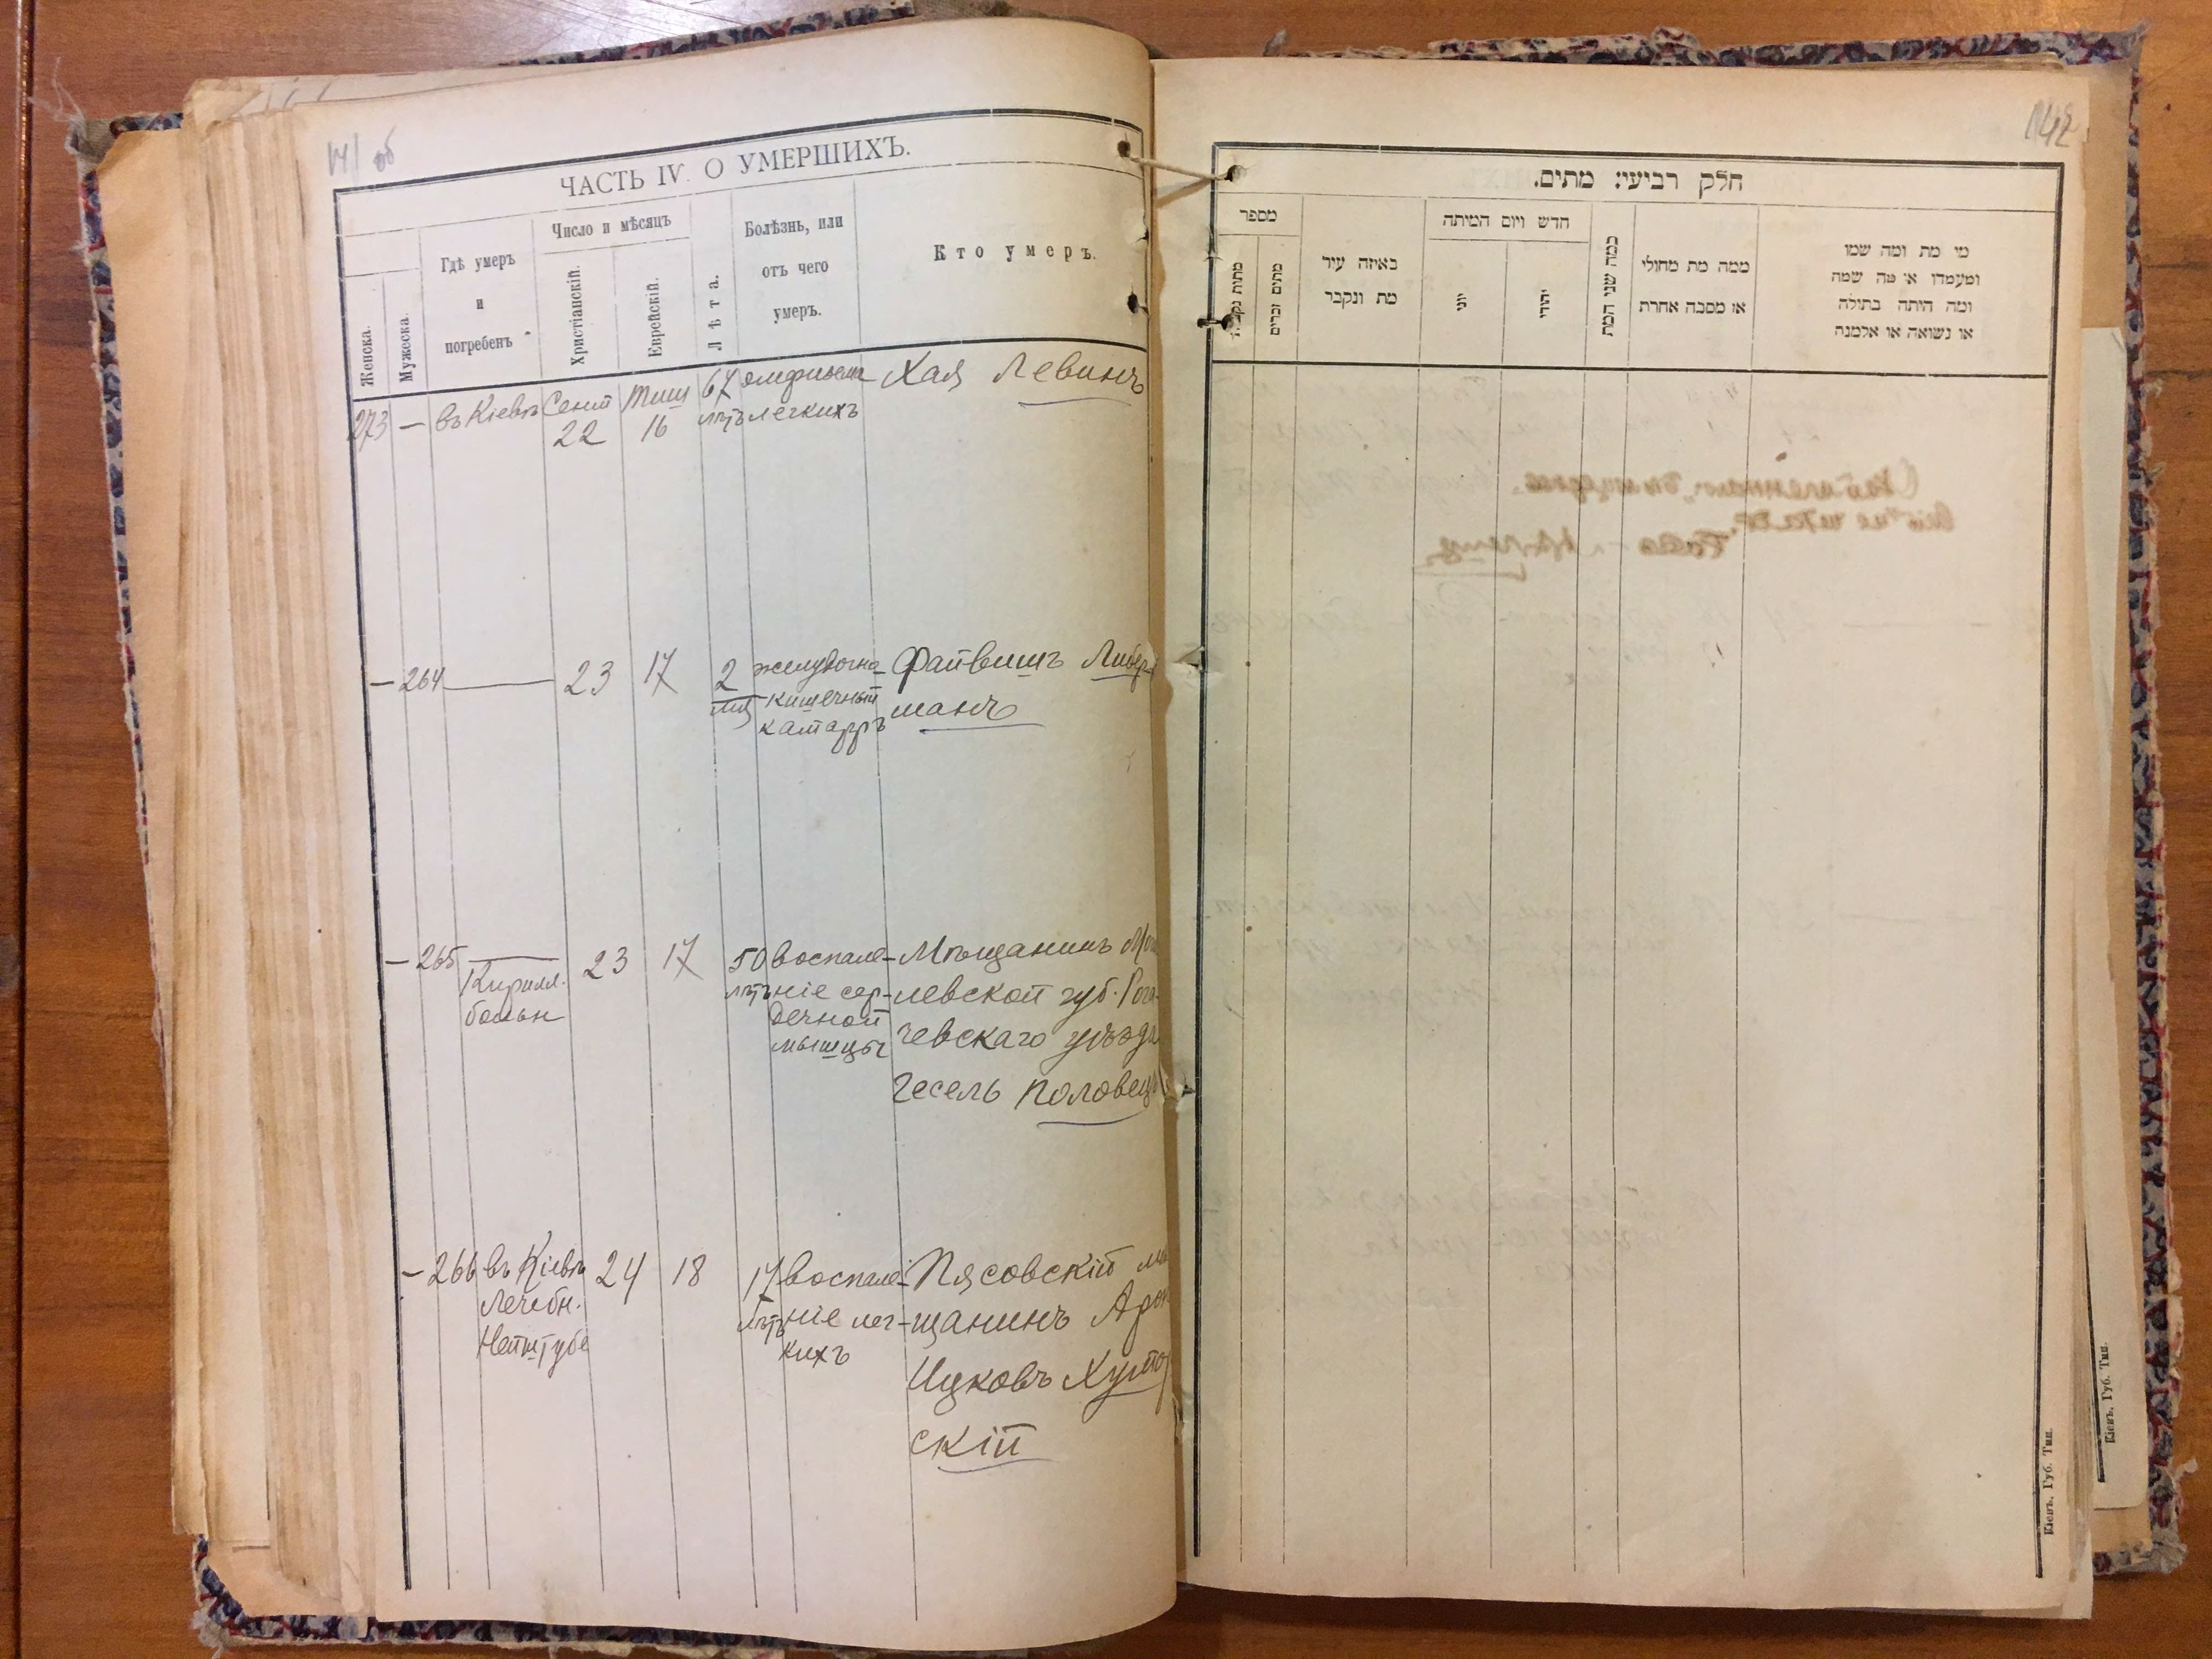 141 об
ЧАСТЬ IV. О УМЕРШИХЪ.
Женска.
Мужеска.
Гдѣ умеръ
и
погребенъ
Число и мѣсяцъ
Христіанскій.
Еврейскій.
Лѣта.
Болѣзнь, или
отъ чего
умеръ.
Кто умеръ.
273 — въ Кіевѣ Сент Тиш 67 эмфизема Хая Левинъ
22 16 лѣтъ легкихъ
— 264 — 23 17 2 желудочно- Файвишъ Либер-
мц кишечный манъ
катарръ
— 265 — 23 17 50 воспале- Мѣщанинъ
Кирилл. лѣтъ ніе сер- левской губ. Рога-
больн дечной чевскаго уѣзда
мышцы
Гесель Половец
— 266 въ Кіевѣ 24 18 17 воспале- Пясовскій
Лечебн. лѣтъ ніе лег- щанинъ Арон
Нейштубе кихъ
Ицковъ
скій
142
חלק רביעי: מתים.
מספר
מתים זכרים
באיזה עיר
מת ונקבר
חדש ויום המיתה
יוני
יהודי
כמה שני המת
ממה מת מחולי
או מסבה אחרת
מי מת ומה שמו
ומעמדו או מה שמה
ומה היתה בתולה
או נשואה או אלמנה
Кіевъ, Губ. Тип.
Кіевъ, Губ. Тип.